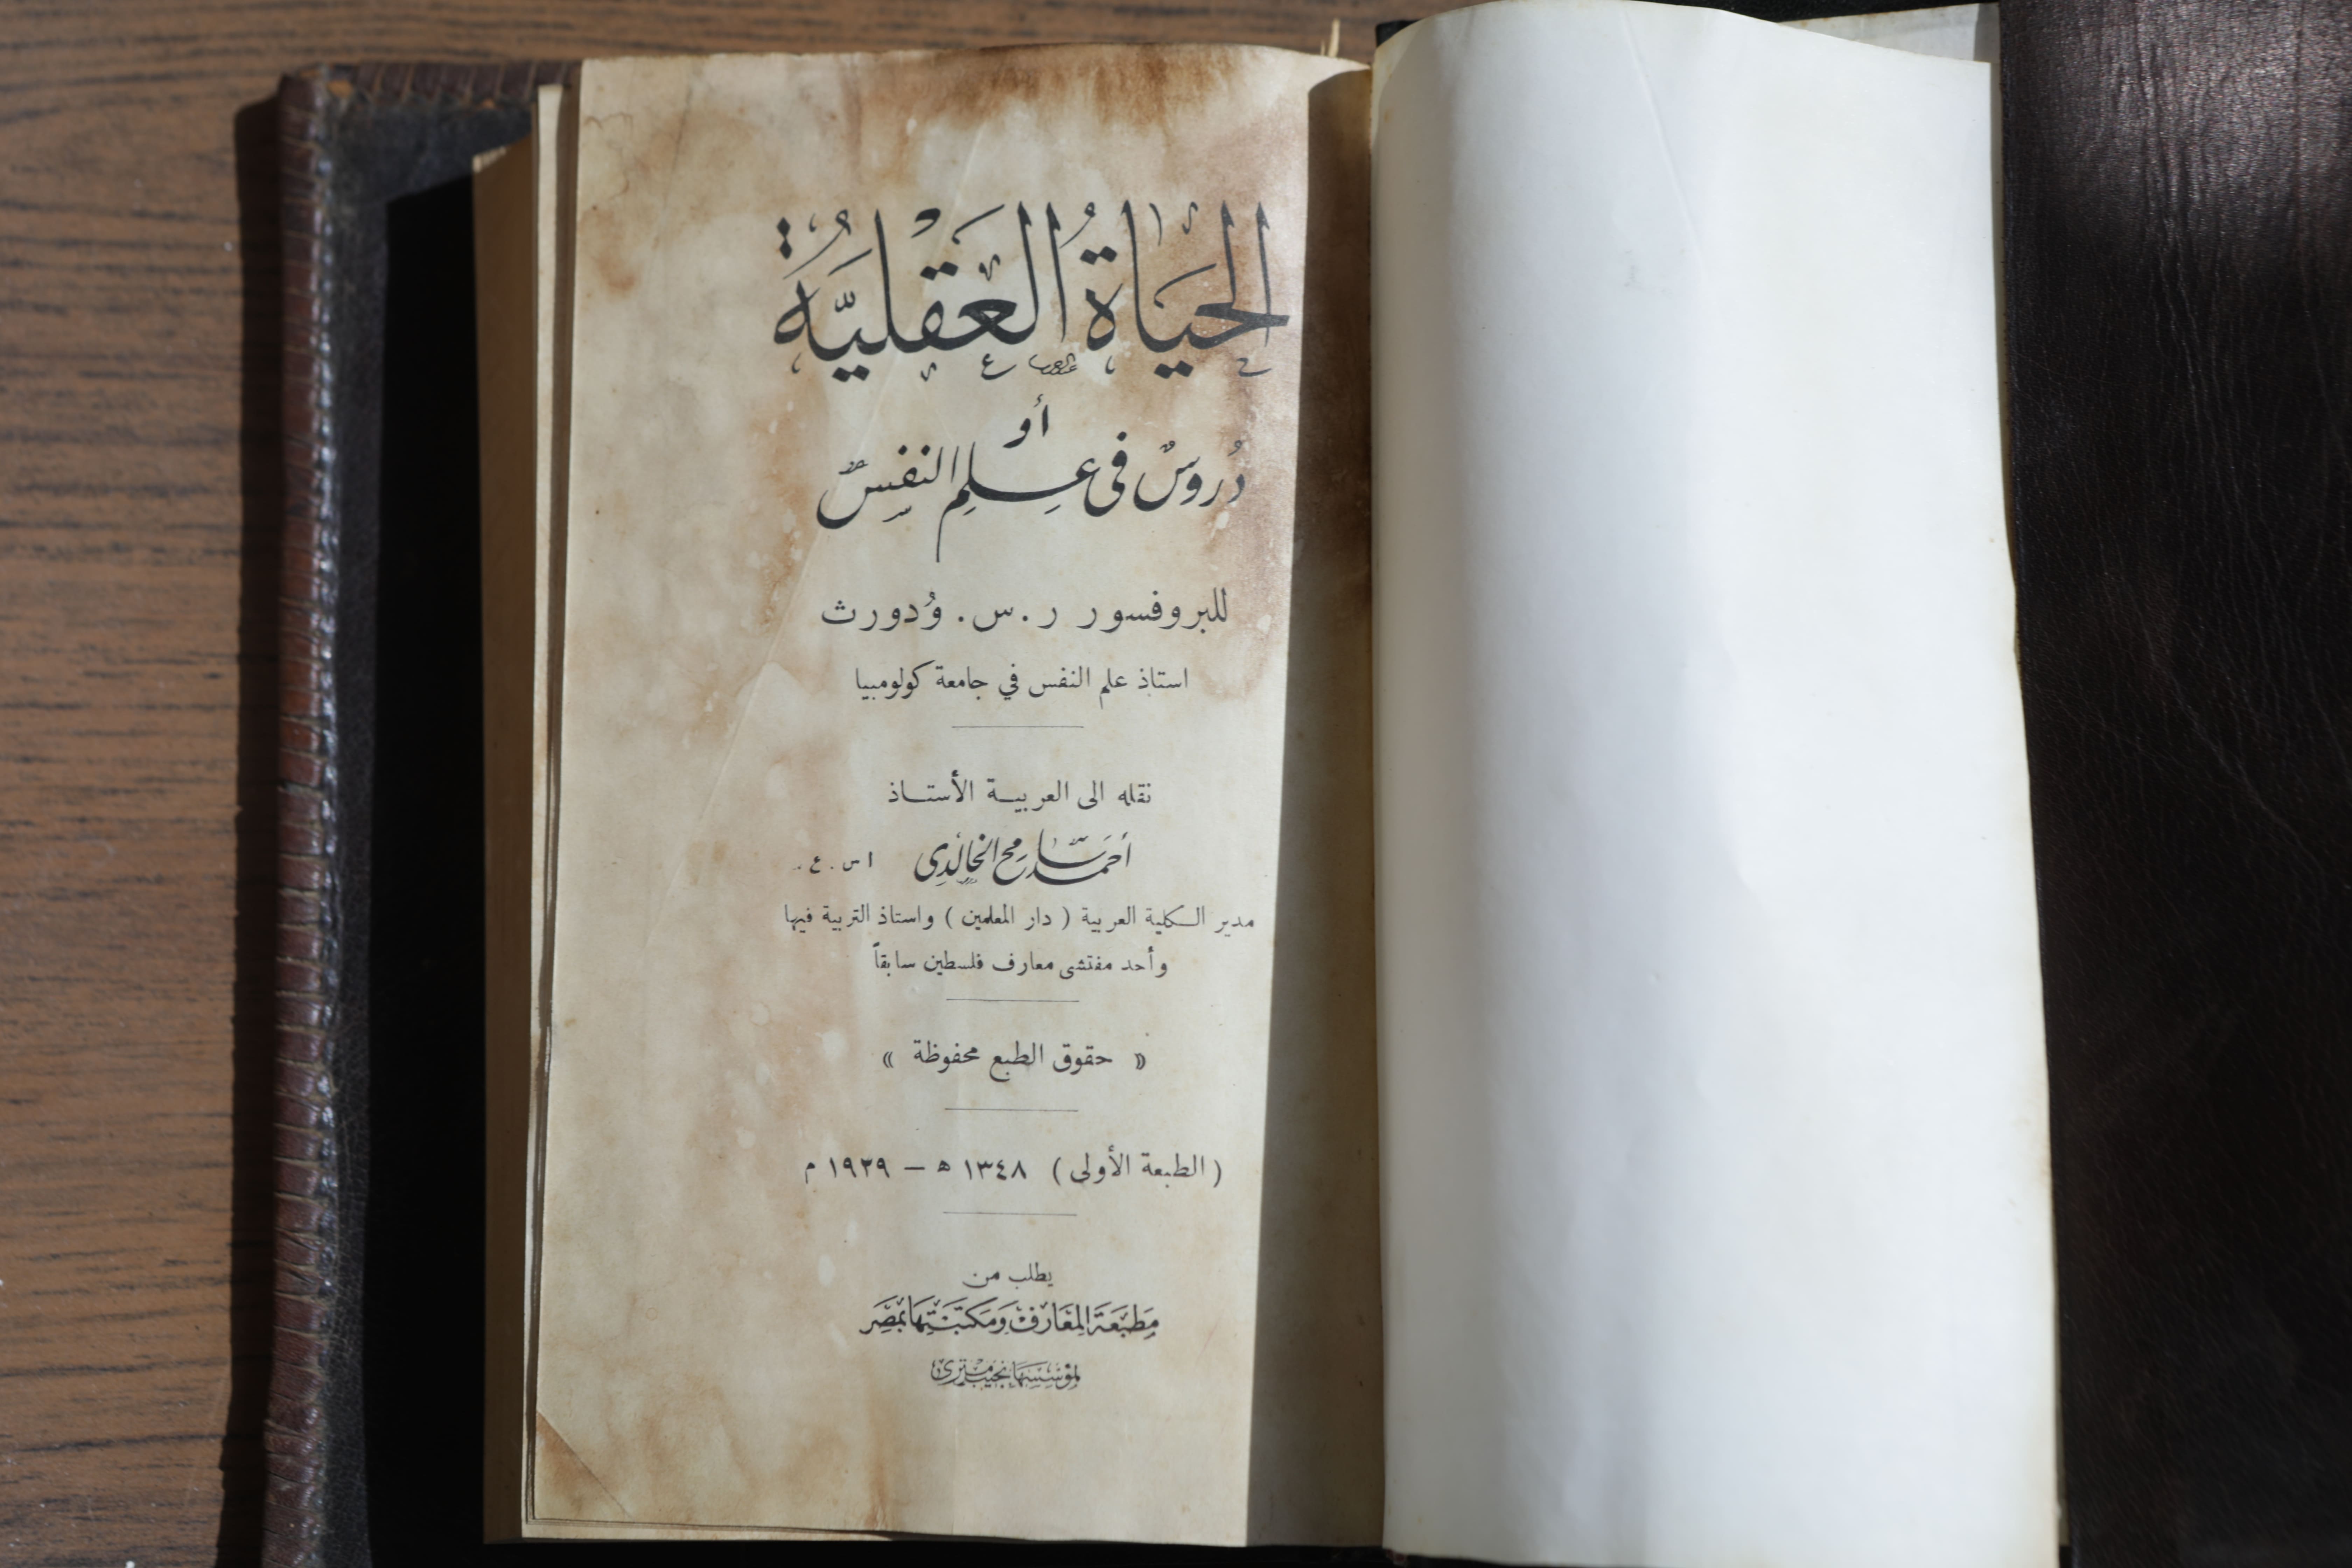 الحَيَاةُ العَقْليَّةُ
أو
دُروسٌ فى عِلمِ النفسِ
للبروفسور ر . س . وُدورث
استاذ علم النفس في جامعة كولومبيا
نقله الى العربية الأستاذ
أحمَد سَامح الخالدِى ا س . ع .
مدير الكلية العربية ( دار المعلمين ) واستاذ التربية فيها
وأحد مفتشى معارف فلسطين سابقاً
« حقوق الطبع محفوظة »
( الطبعة الأولى ) ١٣٤٨ ه — ١٩٢٩ م
يطلب من
مَطبَعَة المَعَارف وَمَكتبَتِهَا بمصِر
لمؤسّسِهَا نجيب مترى